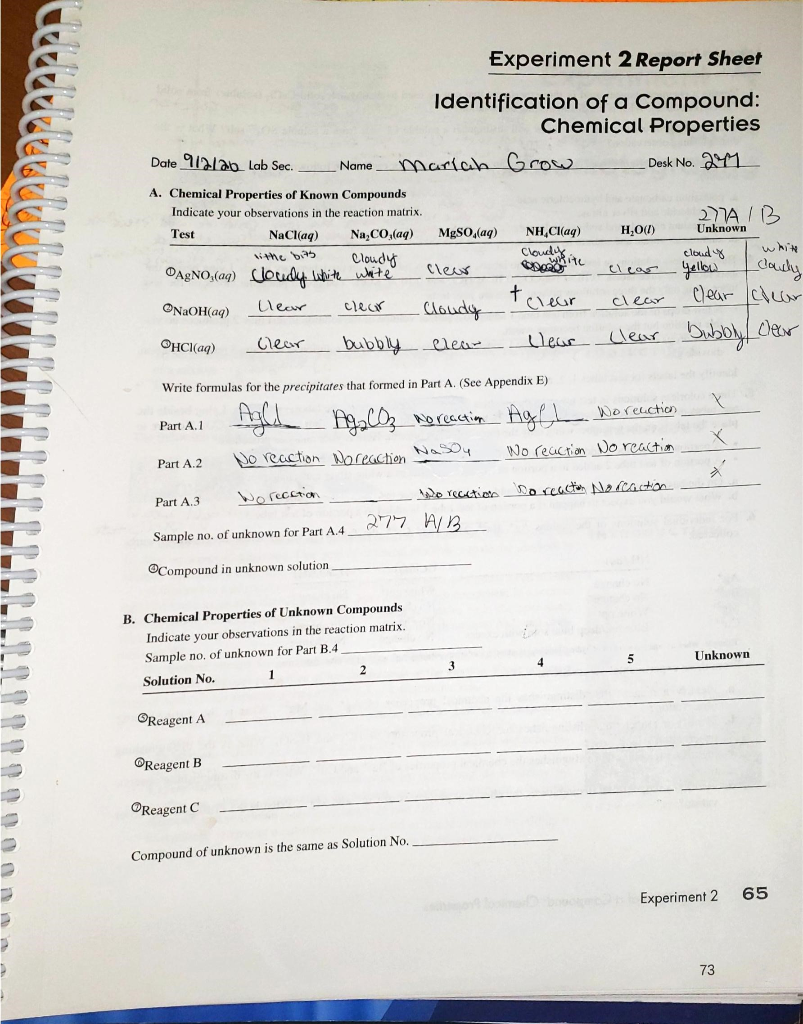 Experiment 2 Report Sheet
Identification of a Compound:
Chemical Properties
Date 9/2/20 Lab Sec. Name Mariah Grow Desk No. 277
A. Chemical Properties of Known Compounds
Indicate your observations in the reaction matrix.
277A / B
Test NaCl(aq) Na₂CO₃(aq) MgSO₄(aq) NH₄Cl(aq) H₂O(l) Unknown
little bits Cloudy Cloudy cloudy white
①AgNO₃(aq) cloudy white white clear white clear yellow cloudy
②NaOH(aq) clear clear cloudy + clear clear clear clear
③HCl(aq) clear bubbly clear clear clear bubbly clear
Write formulas for the precipitates that formed in Part A. (See Appendix E)
Part A.1 AgCl Ag₂CO₃ No reaction AgCl No reaction X
Part A.2 No reaction No reaction NaSO₄ No reaction No reaction X
Part A.3 No reaction No reaction No reaction No reaction X
Sample no. of unknown for Part A.4 277 A/B
④Compound in unknown solution
B. Chemical Properties of Unknown Compounds
Indicate your observations in the reaction matrix.
Sample no. of unknown for Part B.4
Solution No. 1 2 3 4 5 Unknown
⑤Reagent A
⑥Reagent B
⑦Reagent C
Compound of unknown is the same as Solution No.
Experiment 2 65
73